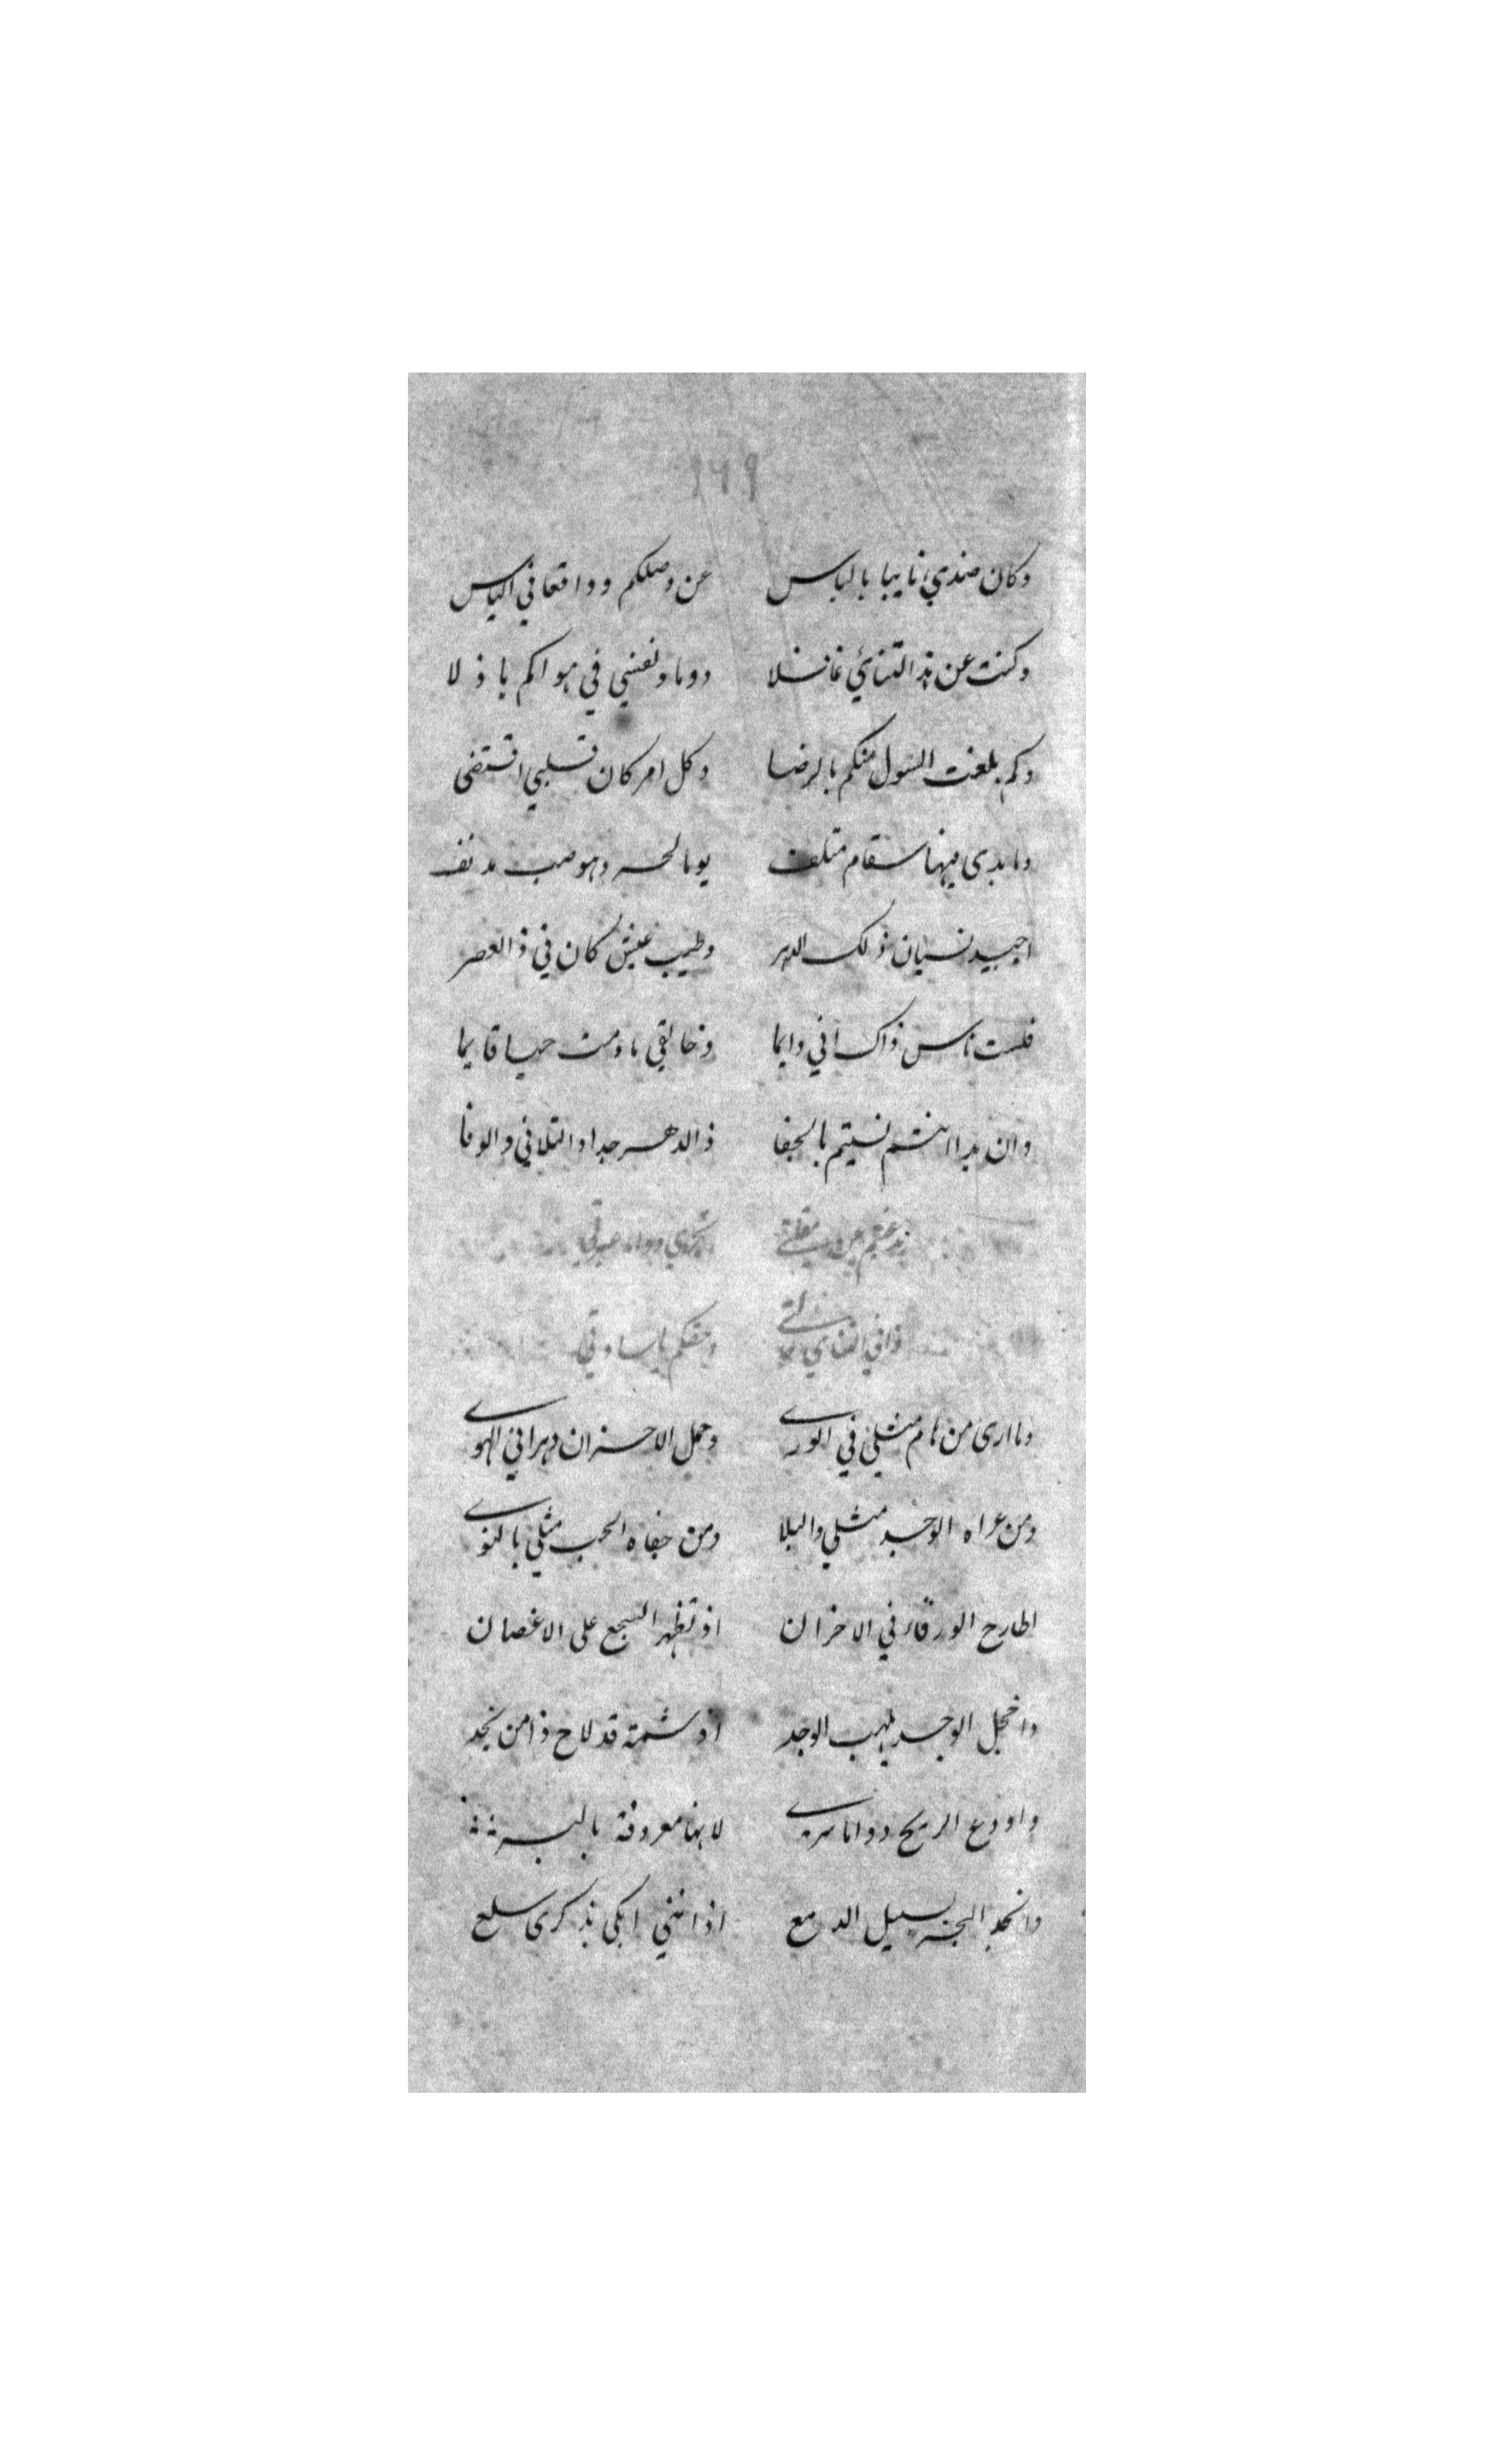 ١٦٩
وكان ضدي نايبا بالباس عن وصلكم وواقعا في الياس
وكنت عن هذا التنائي غافلا دوما ونفسي في هواكم باذلا
وكم بلغت السول منكم بالرضا وكل امر كان قلبي اقتضى
وما بدى فيها سقام متلف يوما لحر وهو صب مدنف
اجيد نسيان ذلك الدهر وطيب عيش كان في ذا العصر
فلست ناس ذاك اني دايما وخالقي ما دمت حيا قايما
وان بدا انتم نسيتم بالجفا ذا الدهر جدا والتلافي والوفا
غبتم عن مقلتي تجري دواما عبرتي
ذا في التنائي وحقكم يا سادتي
وما ارى من هام مثلي في الورى وحمل الاحزان دهرا في الهوى
ومن عراه الوجد مثلي والبلا ومن جفاه الحب مثلي بالنوى
اطارح الورقاء في الاحزان اذ تظهر السجع على الاغصان
واخجل الوجد بلهب الوجد اذ شمته قد لاح ذا من نجد
واودع الريح دواما سري لانها معروفة بالبر
وانجد البحر بسيل الدمع اذ انني ابكي بذكرى سلع